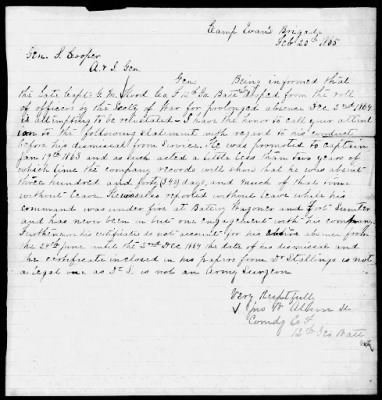 Camp Evans Brigade
Feb 20th 1865
Gen. S. Cooper
A & I Gen
Gen. Being informed that
the late Capt. G. M. Hood Co F 12th Ga Batt droped from the roll
of officers by the Secty of War for prolonged absence Dec 2nd 1864
is attempting to be reinstated - I have the honor to call your attent
ion to the following statement with regard to his conduct
before his dismissal from service. He was promoted to captain
Jan 19th 1863 and as such acted a little less than two years of
which time the company records will show that he was absent
three hundred and forty (340) days, and much of that time
without leave. He was also reported without leave while his
command was under fire at Battery Wagoner and Fort Sumter
and has never been in but one engagement with his company.
Furthermore his certificates do not account for his entire absence from
the 24th June until the 2nd Dec 1864 the date of his dismissal and
the certificate inclosed in his papers from Dr Stallings is not
a legal one as Dr S. is not an Army Surgeon
Very Respectfully
Jno W. Albun Lt
Comdg Co F
12th Geo Batt